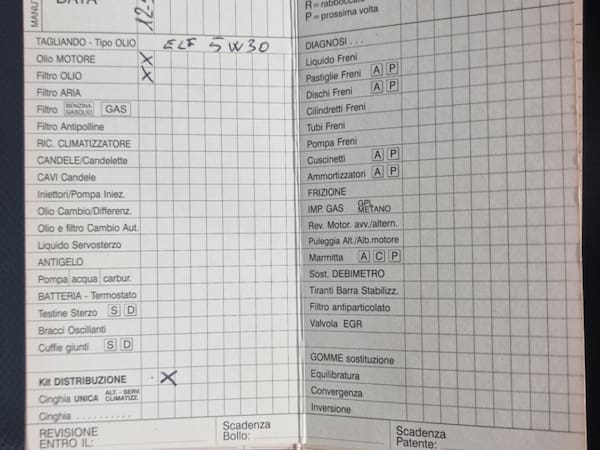 MANUT
DATA
12-
TAGLIANDO - Tipo OLIO ELF 5W30
Olio MOTORE X
Filtro OLIO X
Filtro ARIA
Filtro BENZINA GASOLIO GAS
Filtro Antipolline
RIC. CLIMATIZZATORE
CANDELE/Candelette
CAVI Candele
Iniettori/Pompa Iniez.
Olio Cambio/Differenz.
Olio e filtro Cambio Aut.
Liquido Servosterzo
ANTIGELO
Pompa acqua carbur.
BATTERIA - Termostato
Testine Sterzo S D
Bracci Oscillanti
Cuffie giunti S D
Kit DISTRIBUZIONE X
Cinghia UNICA ALT. - SERV. CLIMATIZZ.
Cinghia ..........
REVISIONE
ENTRO IL:
Scadenza
Bollo:
R = rabbocca
P = prossima volta
DIAGNOSI . . .
Liquido Freni
Pastiglie Freni A P
Dischi Freni A P
Cilindretti Freni
Tubi Freni
Pompa Freni
Cuscinetti A P
Ammortizzatori A P
FRIZIONE
IMP. GAS GPL METANO
Rev. Motor. avv./altern.
Puleggia Alt./Alb.motore
Marmitta A C P
Sost. DEBIMETRO
Tiranti Barra Stabilizz.
Filtro antiparticolato
Valvola EGR
GOMME sostituzione
Equilibratura
Convergenza
Inversione
Scadenza
Patente: